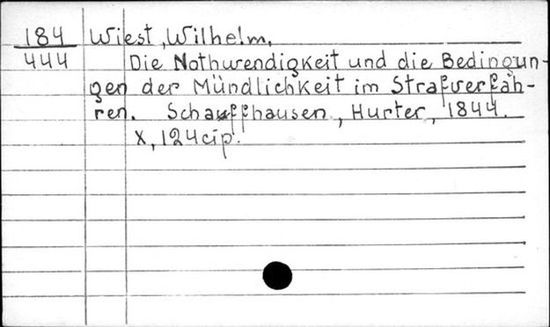 184 Wiest, Wilhelm,
444 Die Nothwendigkeit und die Bedingun-
gen der Mündlichkeit im Strafverfah-
ren. Schaffhausen, Hurter, 1844.
X, 124 cip.